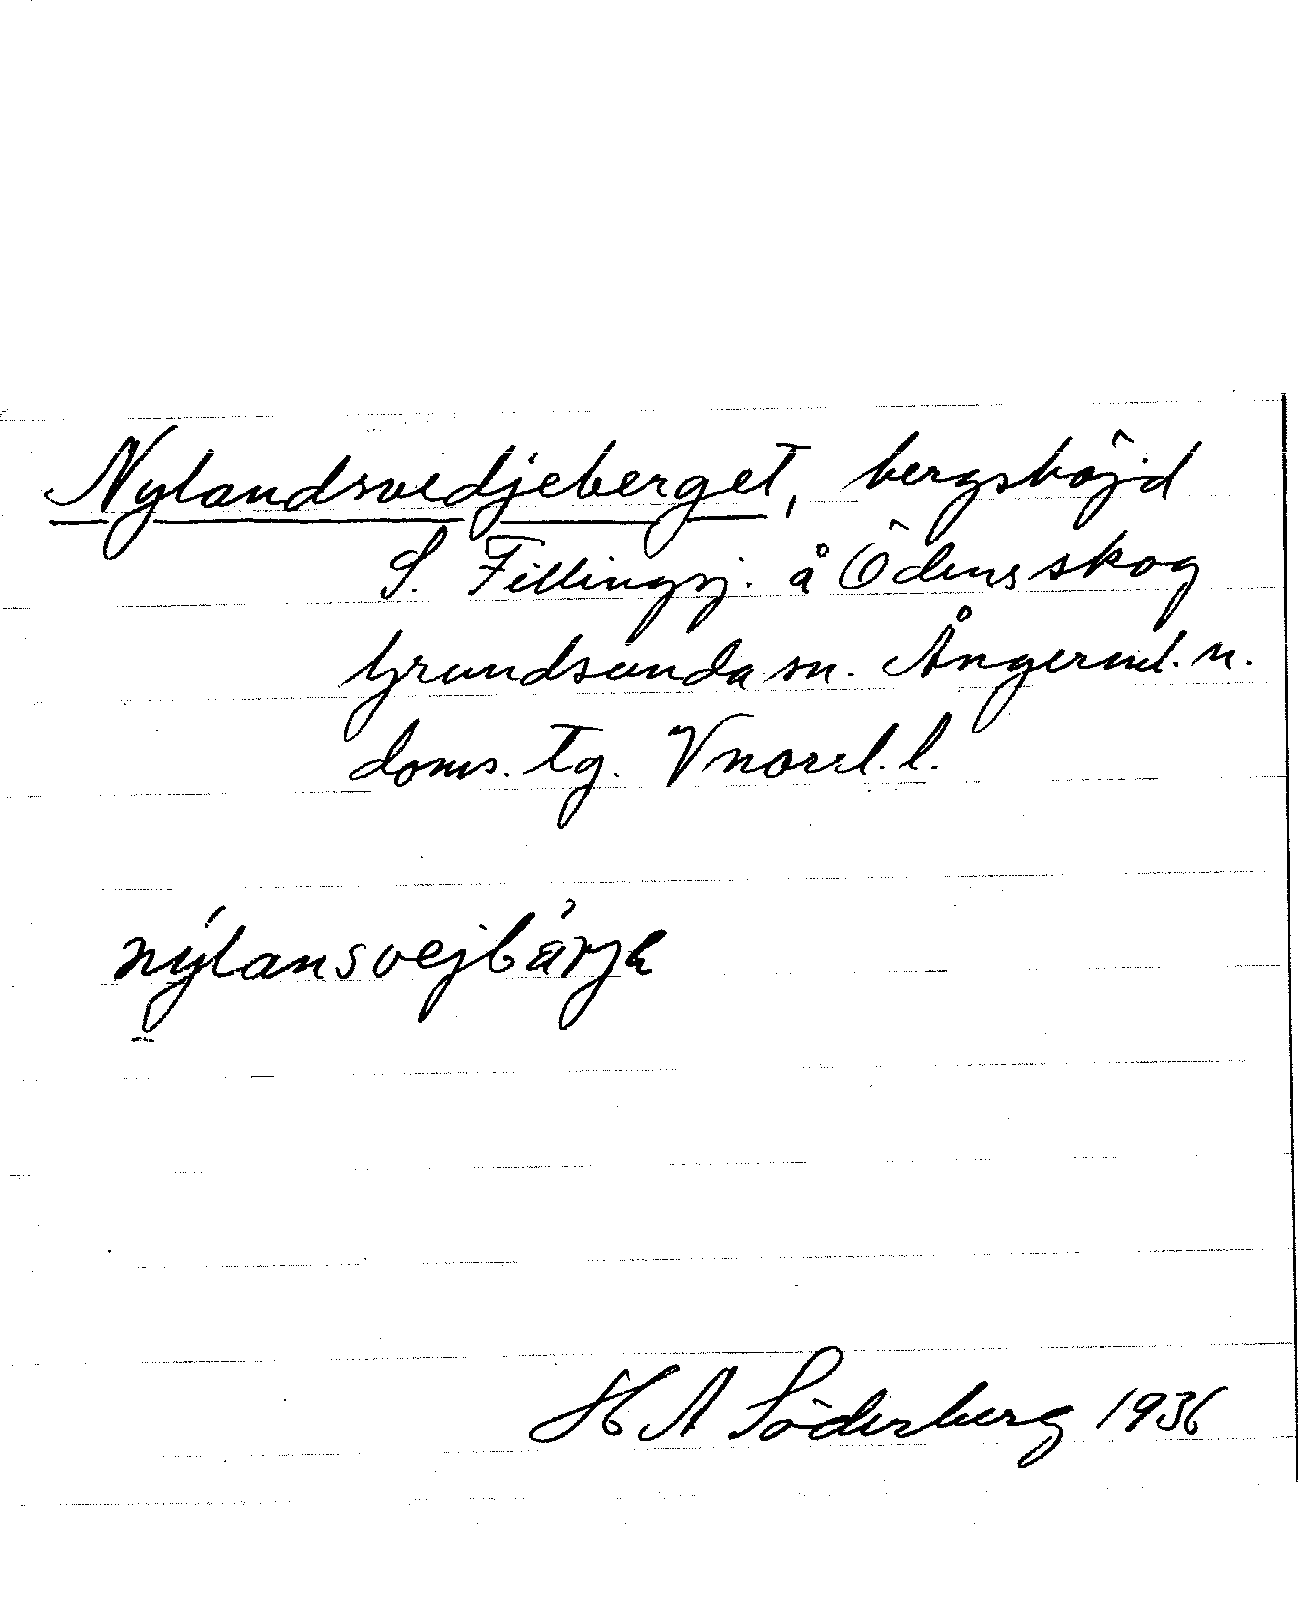 Nylandsvedjeberget, bergshöjd
S. Fillingsj. å Ödens skog
Grundsunda sn. Ångerml. n.
doms. tg. Vnorrl. l.
nýlansvejbä̀rjɐ
H A Söderberg 1936